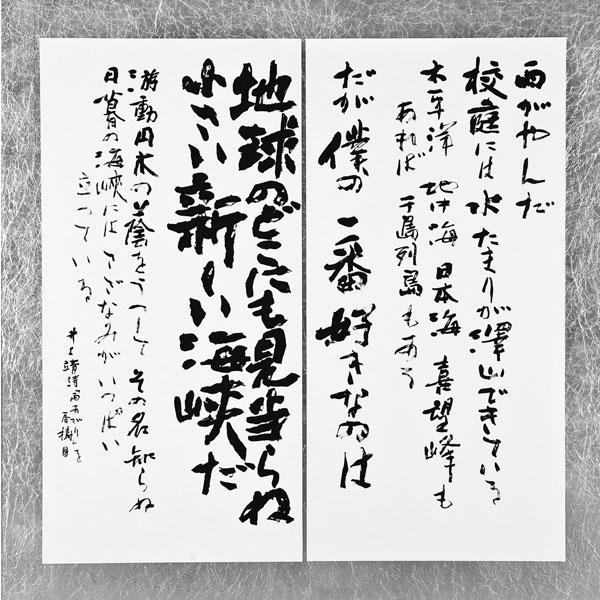 雨がやんだ
校庭には水たまりが澤山できている
太平洋 地中海 日本海 喜望峰も
あれば 千島列島もある
だが僕の一番好きなのは
地球のどこにも見当らぬ
小さい新しい海峡だ
遊動円木の蔭をうつして その名知らぬ
日暮の海峡には さざなみがいっぱい
立っている
井上靖詩 雨あがりを